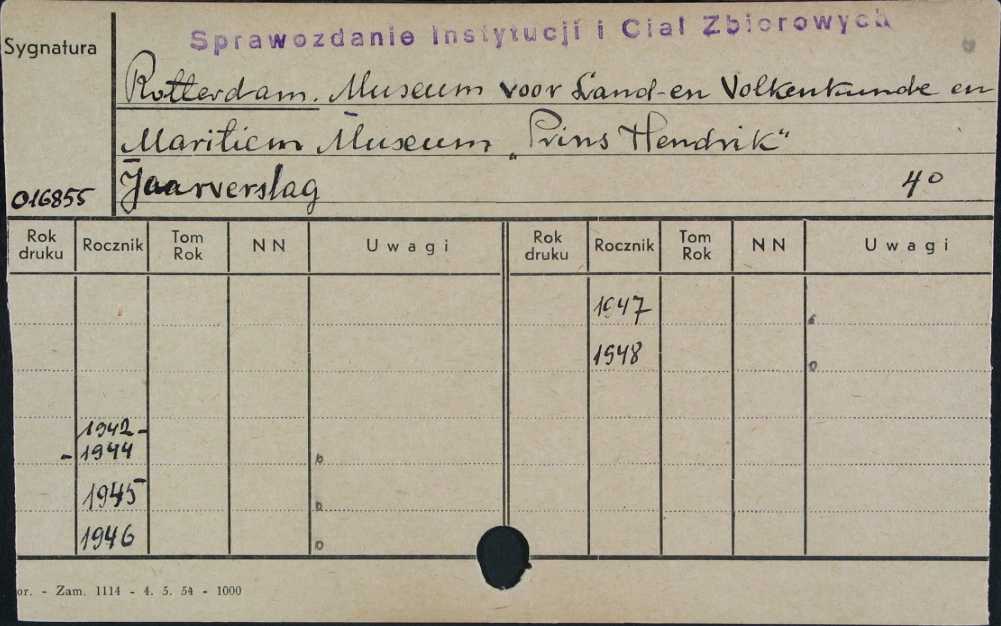 Sprawozdanie Instytucji i Ciał Zbiorowych
Sygnatura
Rotterdam. Museum voor Land-en Volkenkunde en
Maritiem Museum „Prins Hendrik“
Jaarverslag 4º
016855
Rok druku Rocznik Tom Rok NN Uwagi Rok druku Rocznik Tom Rok NN Uwagi
1947
1948
1942-
-1944
1945
1946
or. - Zam. 1114 - 4. 5. 54 - 1000